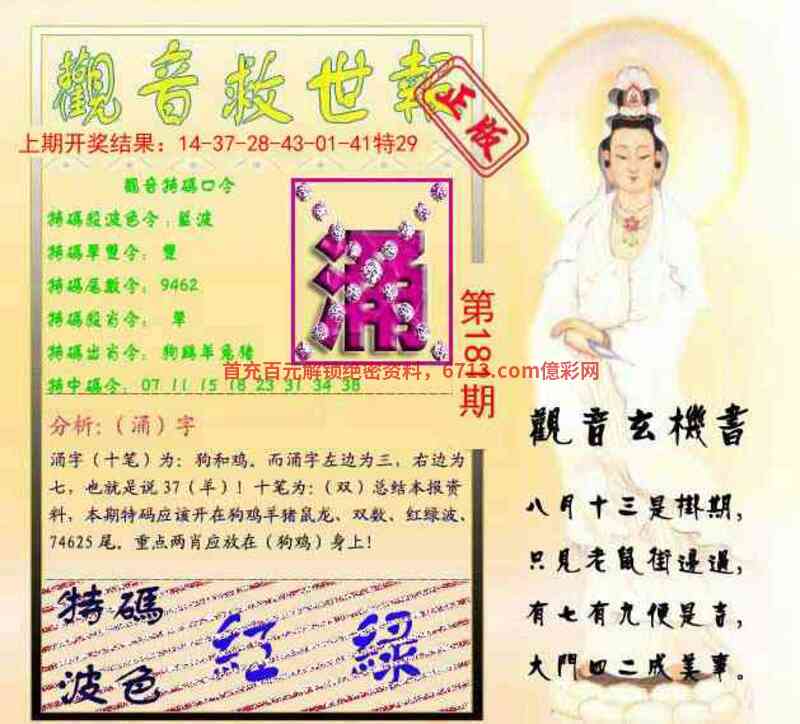 觀音救世報
正版
上期开奖结果：14-37-28-43-01-41特29
觀音特碼口令
特碼殺波色令：藍波
特碼單雙令：雙
特碼尾數令：9462
特碼殺肖令：單
特碼出肖令：狗鷄羊兔豬
特中碼令：07 11 15 18 23 31 34 38
涌
第18期
首充百元解锁绝密资料，6713.com億彩网
分析:（涌）字
涌字（十笔）为：狗和鸡。而涌字左边为三，右边为
七，也就是说37（羊）！十笔为:（双）总结本报资
料，本期特码应该开在狗鸡羊猪鼠龙、双数、红绿波、
74625尾。重点两肖应放在（狗鸡）身上！
特碼
波色
紅 綠
觀音玄機書
八月十三是掛期，
只見老鼠街邊過，
有七有九便是吉，
大門四二成美事。